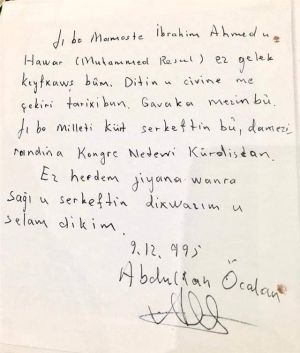 Ji bo Mamoste İbrahim Ahmed u
Hawar (Muhammed Resul) ez gelek
keyfxweş bûm. Ditin u civine me
çekiri tarixi bun. Gavaka mezin bû.
Ji bo milleti kürt serkeftin bû, damez
randina Kongre Netewi Kürdistan.
Ez herdem jiyana wanra
sağı u serkeftin dixwazım u
selam dikim.
9.12.995
Abdullah Öcalan